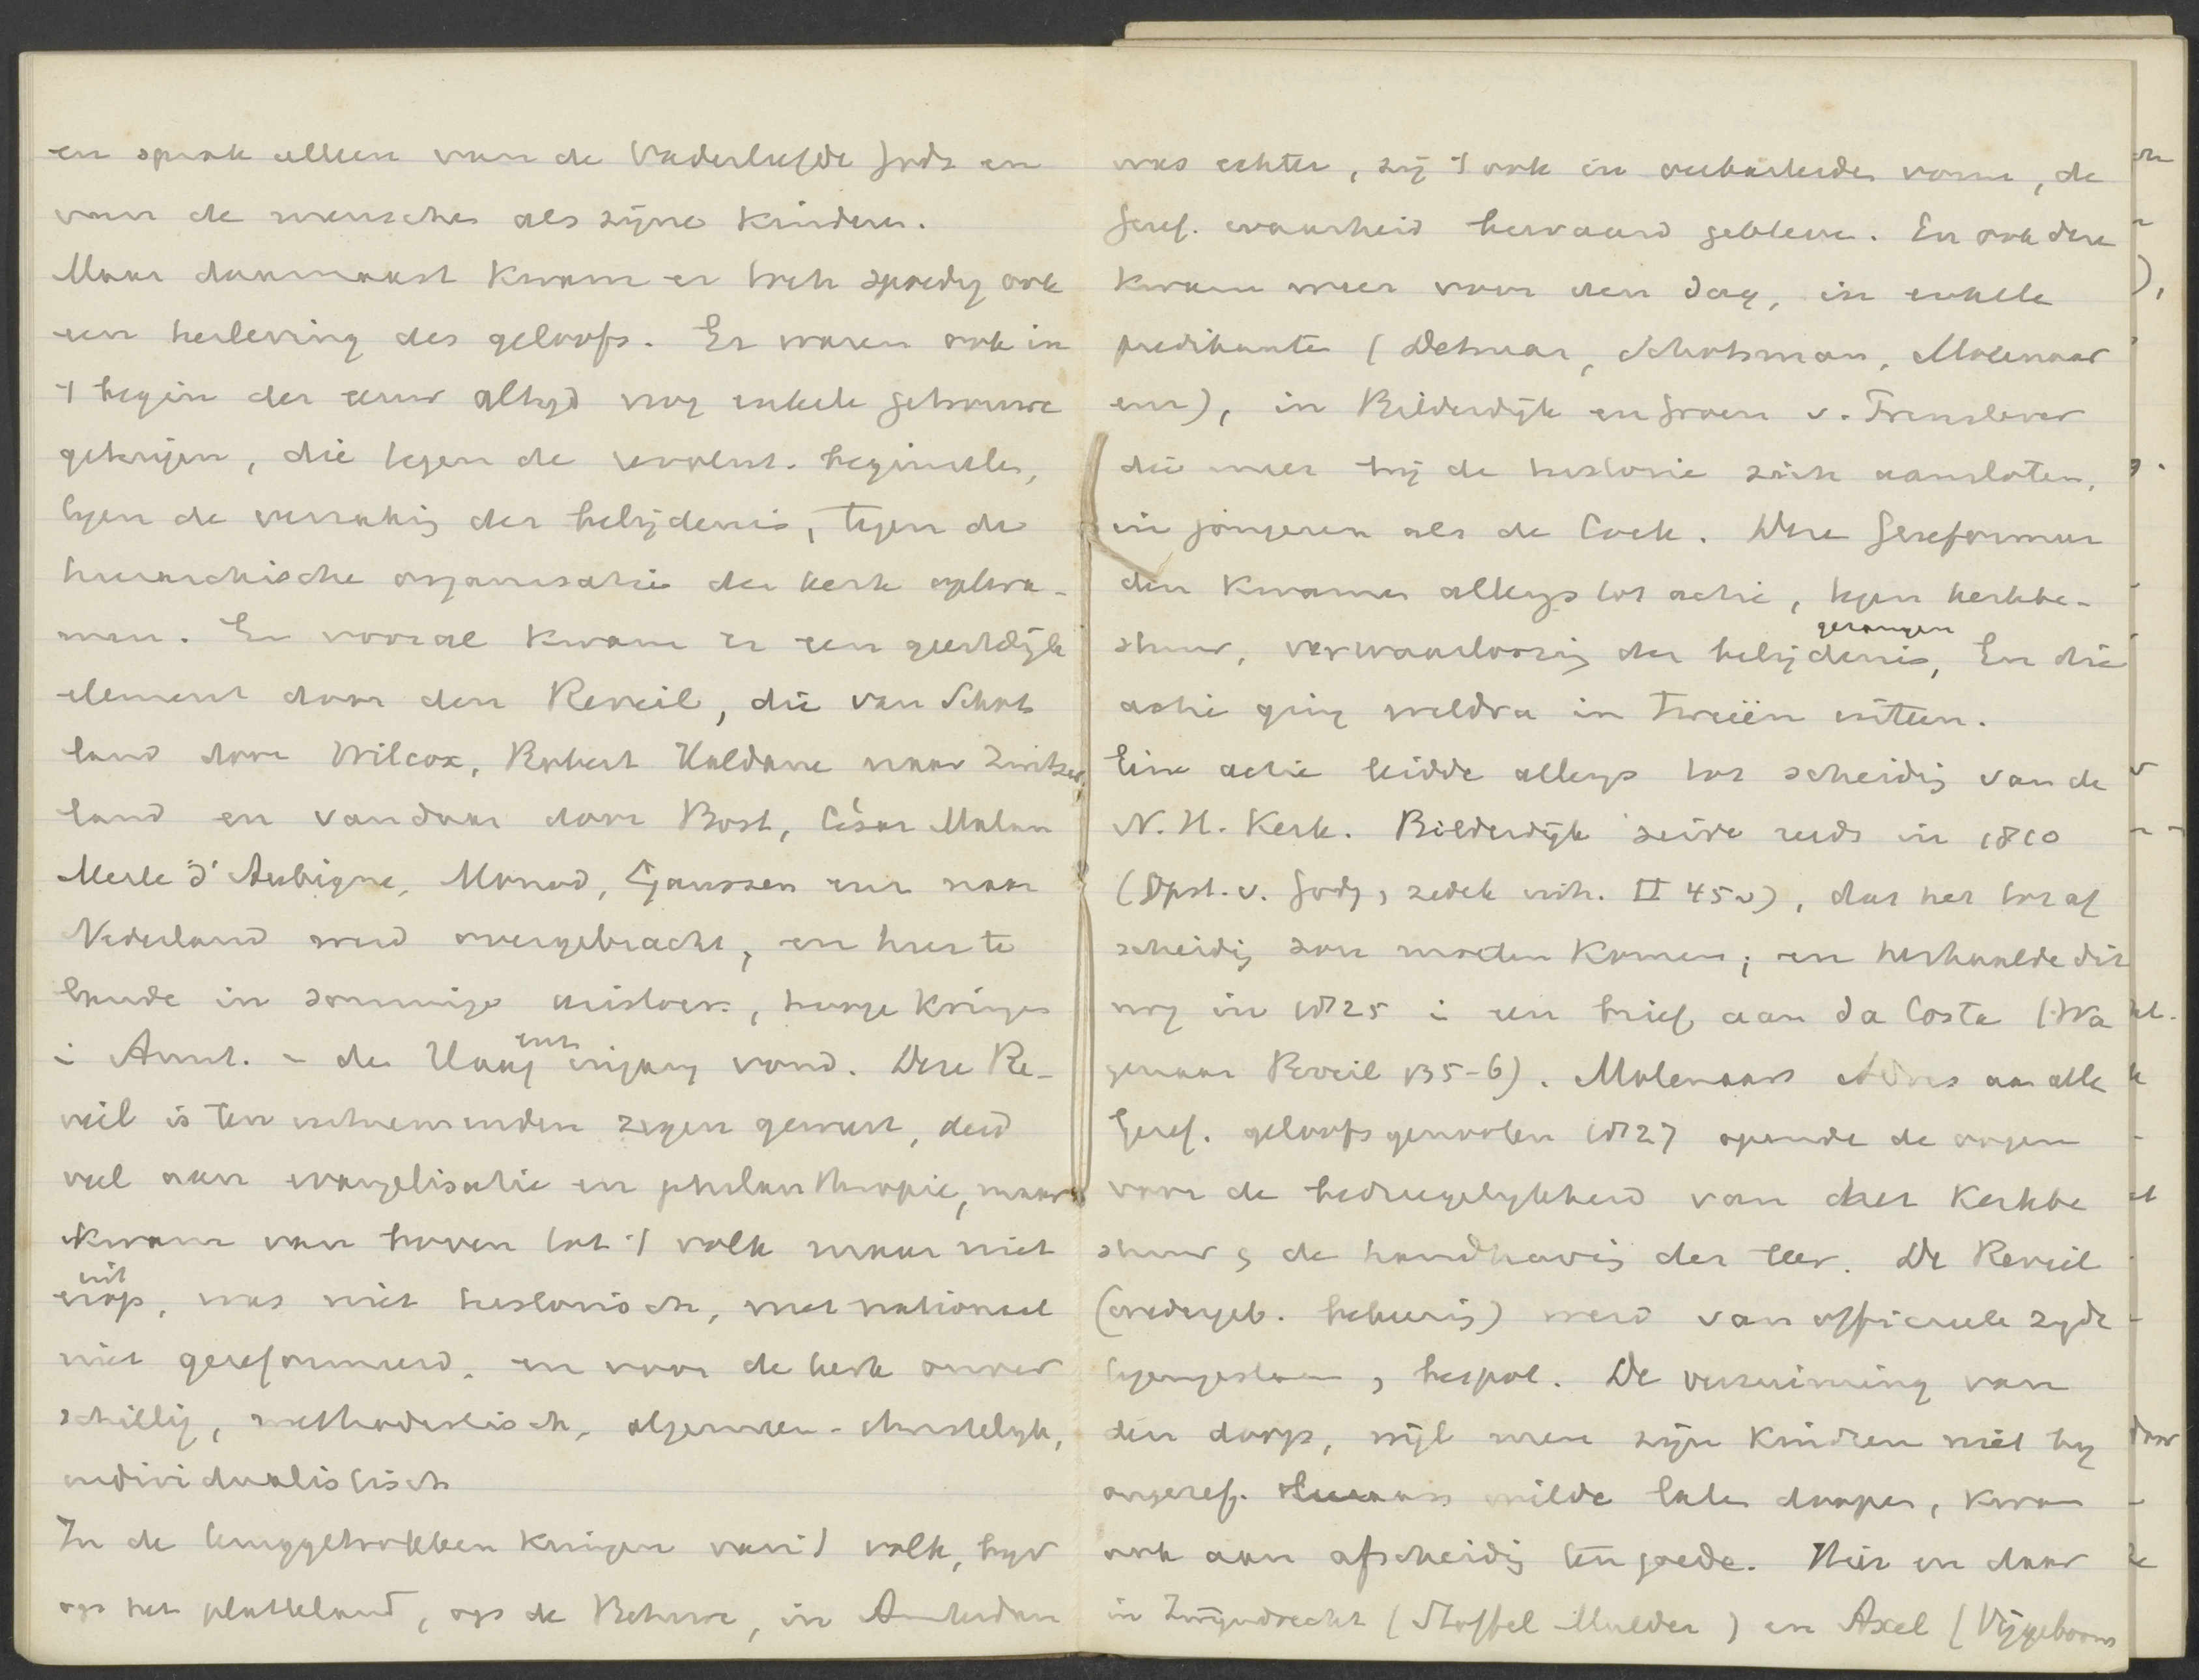 en sprak alleen van de Vaderliefde Gods en
van de menschen als zijne kinderen.
Maar daarnaast kwam er toch spoedig ook
een herleving des geloofs. Er waren ook in
't begin der eeuw altijd nog enkele getrouwe
getuigen, die tegen de revolut. beginselen,
tegen de verzaking der belijdenis, tegen de
hierarchische organisatie der kerk opkwa-
men. En vooral kwam er een geestelijk
element door den Reveil, die van Schot
land door Wilcox, Robert Haldane naar Zwitser
land en vandaar door Bost, César Malan
Merle d'Aubigne, Monod, Gaussen enz naar
Nederland werd overgebracht, en hier te
lande in sommige aristocr., hooge kringen
i Amst. - den Haag enz ingang vond. Deze Re-
veil is ten zegen geweest, deed
veel aan evangelisatie en philanthropie, maar
kwam van boven tot 't volk maar niet
erop uit, was niet historisch, niet nationaal
niet gereformeerd, en voor de kerk onver
schillig, methodistisch, algemeen-christelijk,
individualistisch
In de teruggetrokken kringen van 't volk, bijv
op het platteland, op de Betuwe, in Amsterdam
was echter, zij 't ook in verbasterden vorm, de
Geref. waarheid bewaard gebleven. En ook deze
kwam weer voor den dag, in enkele
predikanten (Detmar, Schotsman, Molenaar
enz), in Bilderdijk en Groen v. Prinsterer
die meer bij de historie zich aansloten,
in jongeren als de Cock. Deze Gereformeer
den kwamen allengs tot actie, tegen kerkbe-
stuur, verwaarloozing der belijdenis, gezangen En die
actie ging weldra in tweeën uiteen.
Eene actie leidde allengs tot scheiding van de
N. H. Kerk. Bilderdijk zeide reeds in 1810
(Opst. v. Godg, zedek inh. II 45 ), dat het tot af
scheiding zou moeten komen; en herhaalde dit
nog in 1825 i een brief aan Da Costa (Wa
genaar Reveil 135-6). Molenaars Adres aan alle
Geref. geloofsgenooten 1827 opende de oogen
voor de bedriegelijkheid van het kerkbe
stuur de handhaving der leer. De Reveil
(wedergeb. bekeering) werd van officieele zijde
tegengestaan, bespot. De verzuiming van
den doop, wijl men zijn kinderen niet bij
ongeref. leeraars wilde laten doopen, kwam
ook aan afscheiding ten goede. Hier en daar
in Zwijndrecht (Stoffel Mulder) en Axel (Vijgeboom